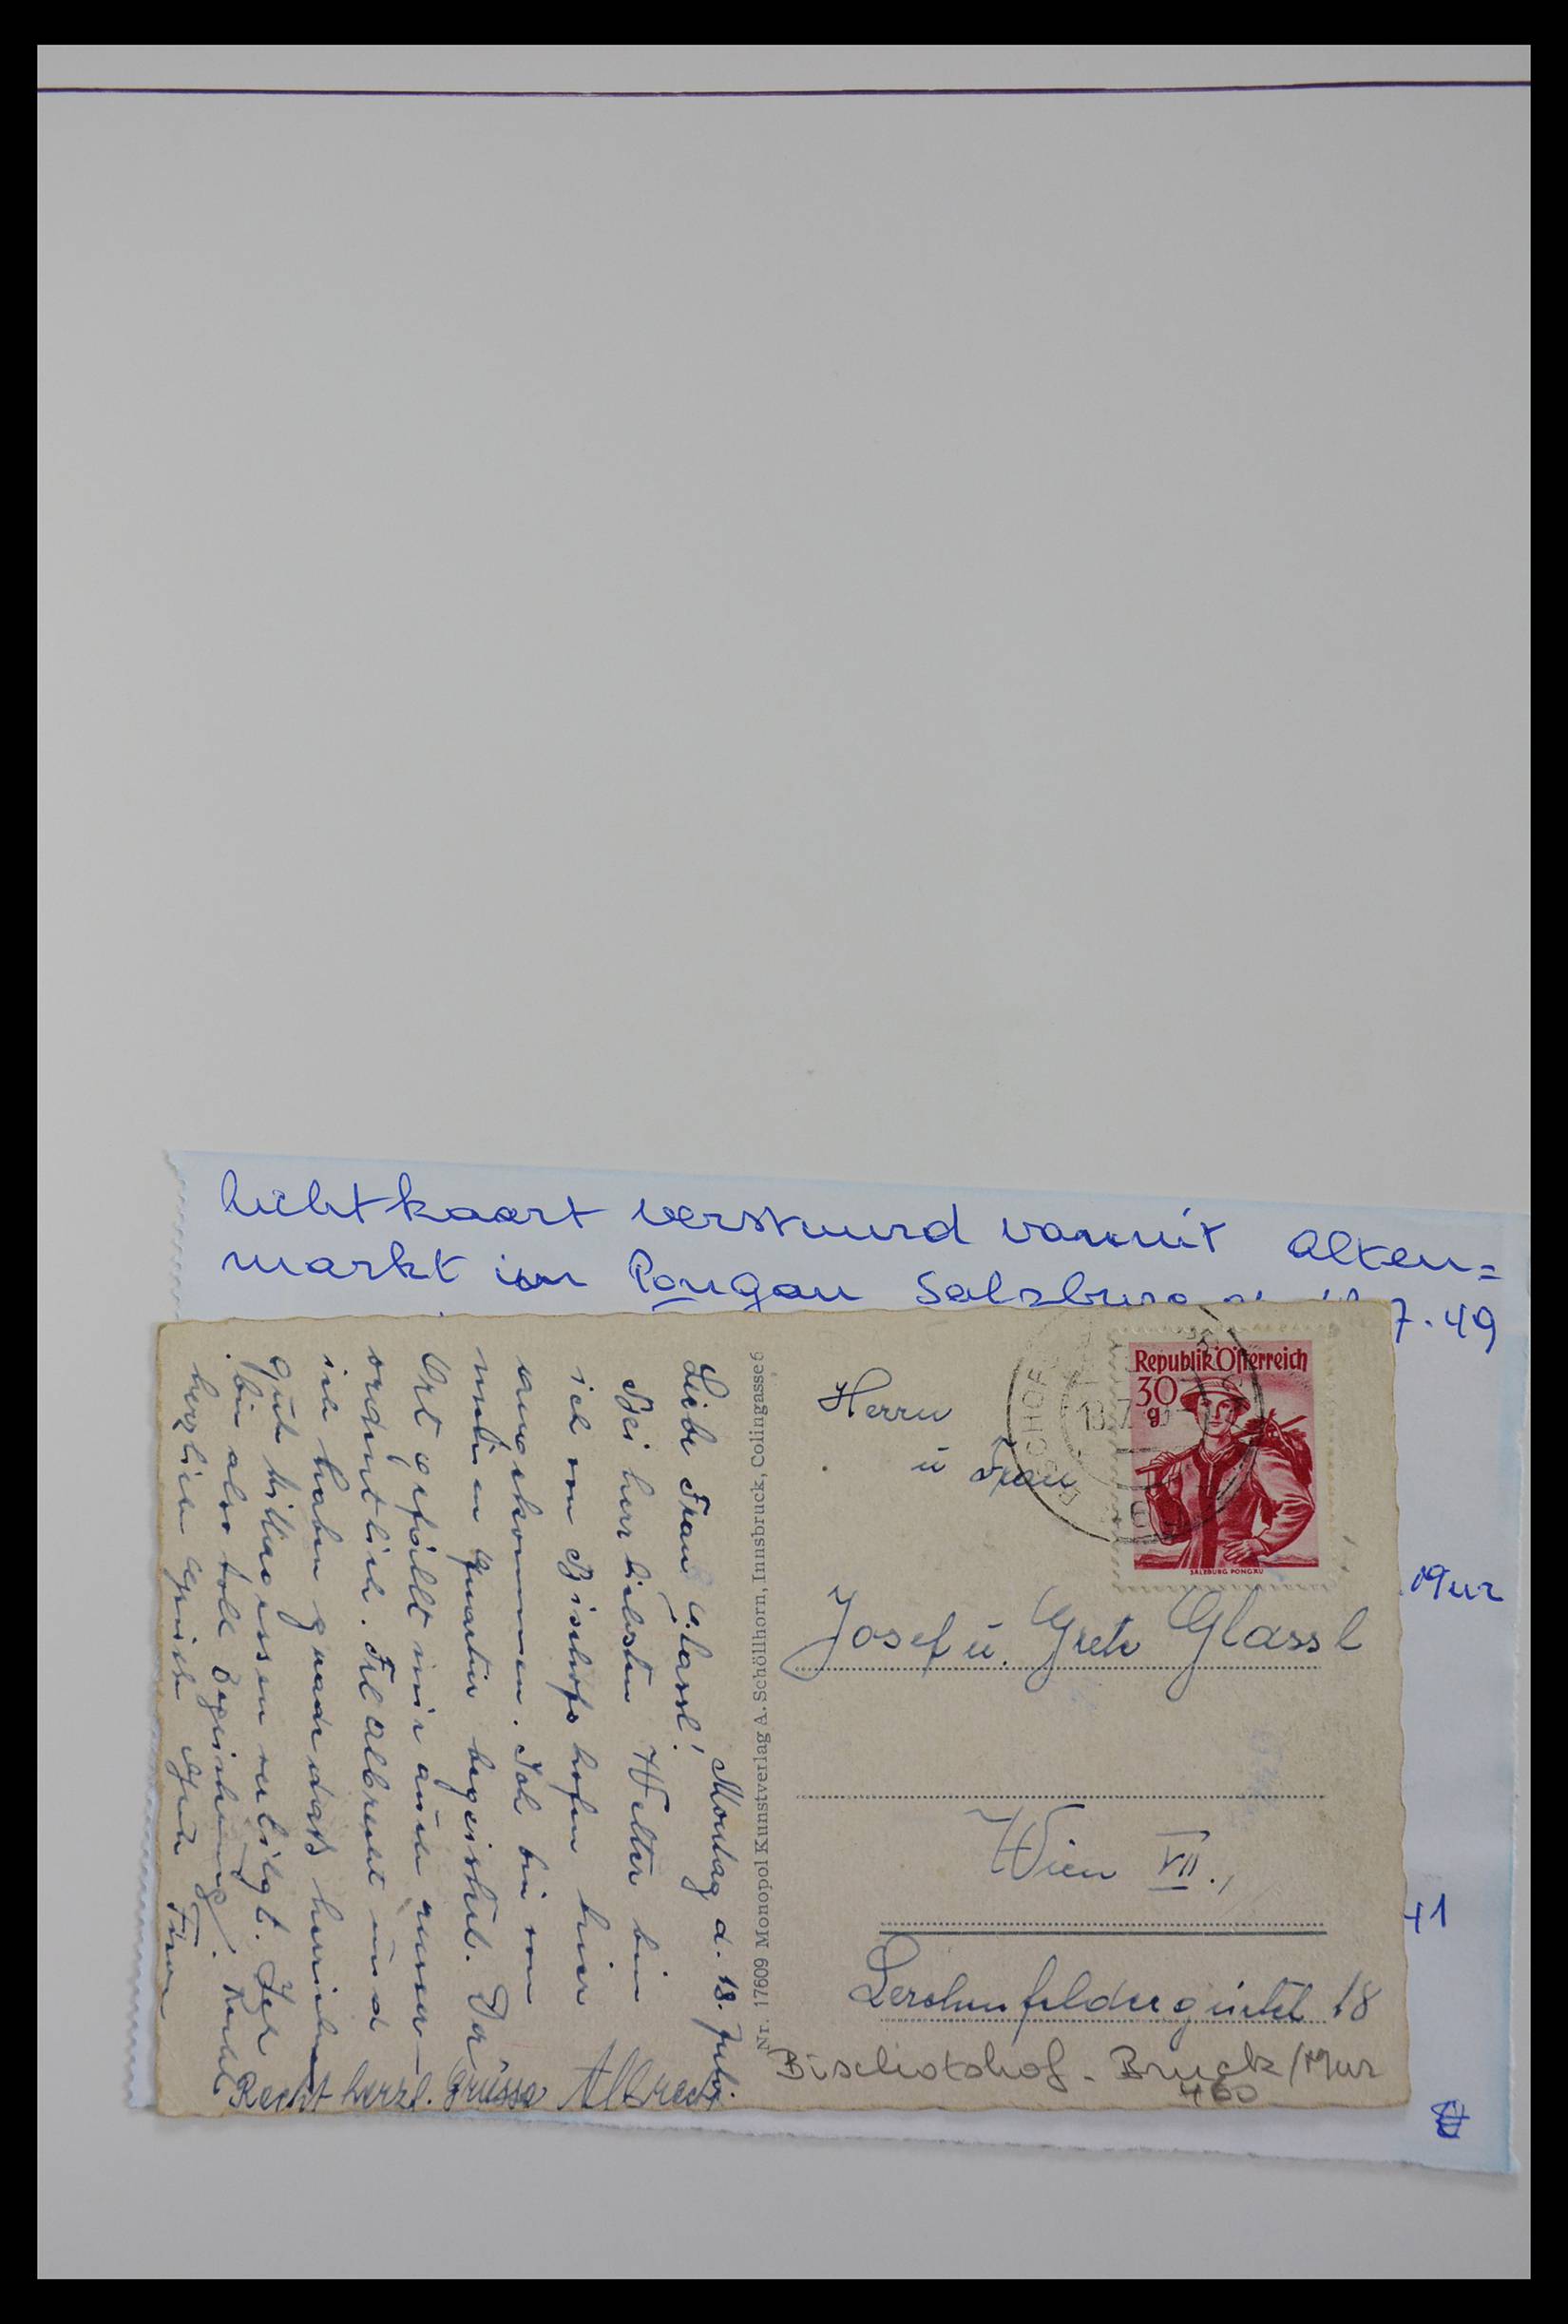 lichtkaart verstuurd vanuit Alten=
markt im Pongau Salzburg
7.49
Mur
41
Republik Österreich
30
g
SALZBURG PONGAU
SCHOF
18.7
Herrn
u Frau
Josef u. Grete Glassl
Wien VII.,
Lerchenfeldergürtel 18
Bischofshof - Bruck/Mur
400
Nr. 17609 Monopol Kunstverlag A. Schöllhorn, Innsbruck, Colingasse 6
Montag d. 18. Juli.
Liebe Frau Glassl!
Bei herrlichsten Wetter bin
ich von Bischofshofen hier
angekommen. Ich bin von
meinen Quartier begeistert. Der
Ort gefällt mir auch ausser-
ordentlich. Frl Albrecht und
ich haben gerade das herrliche
gute billige essen vertilgt. Ich
bin also voll Begeisterung.
herzliche Grüsse
Recht herzl. Grüsse Albrecht